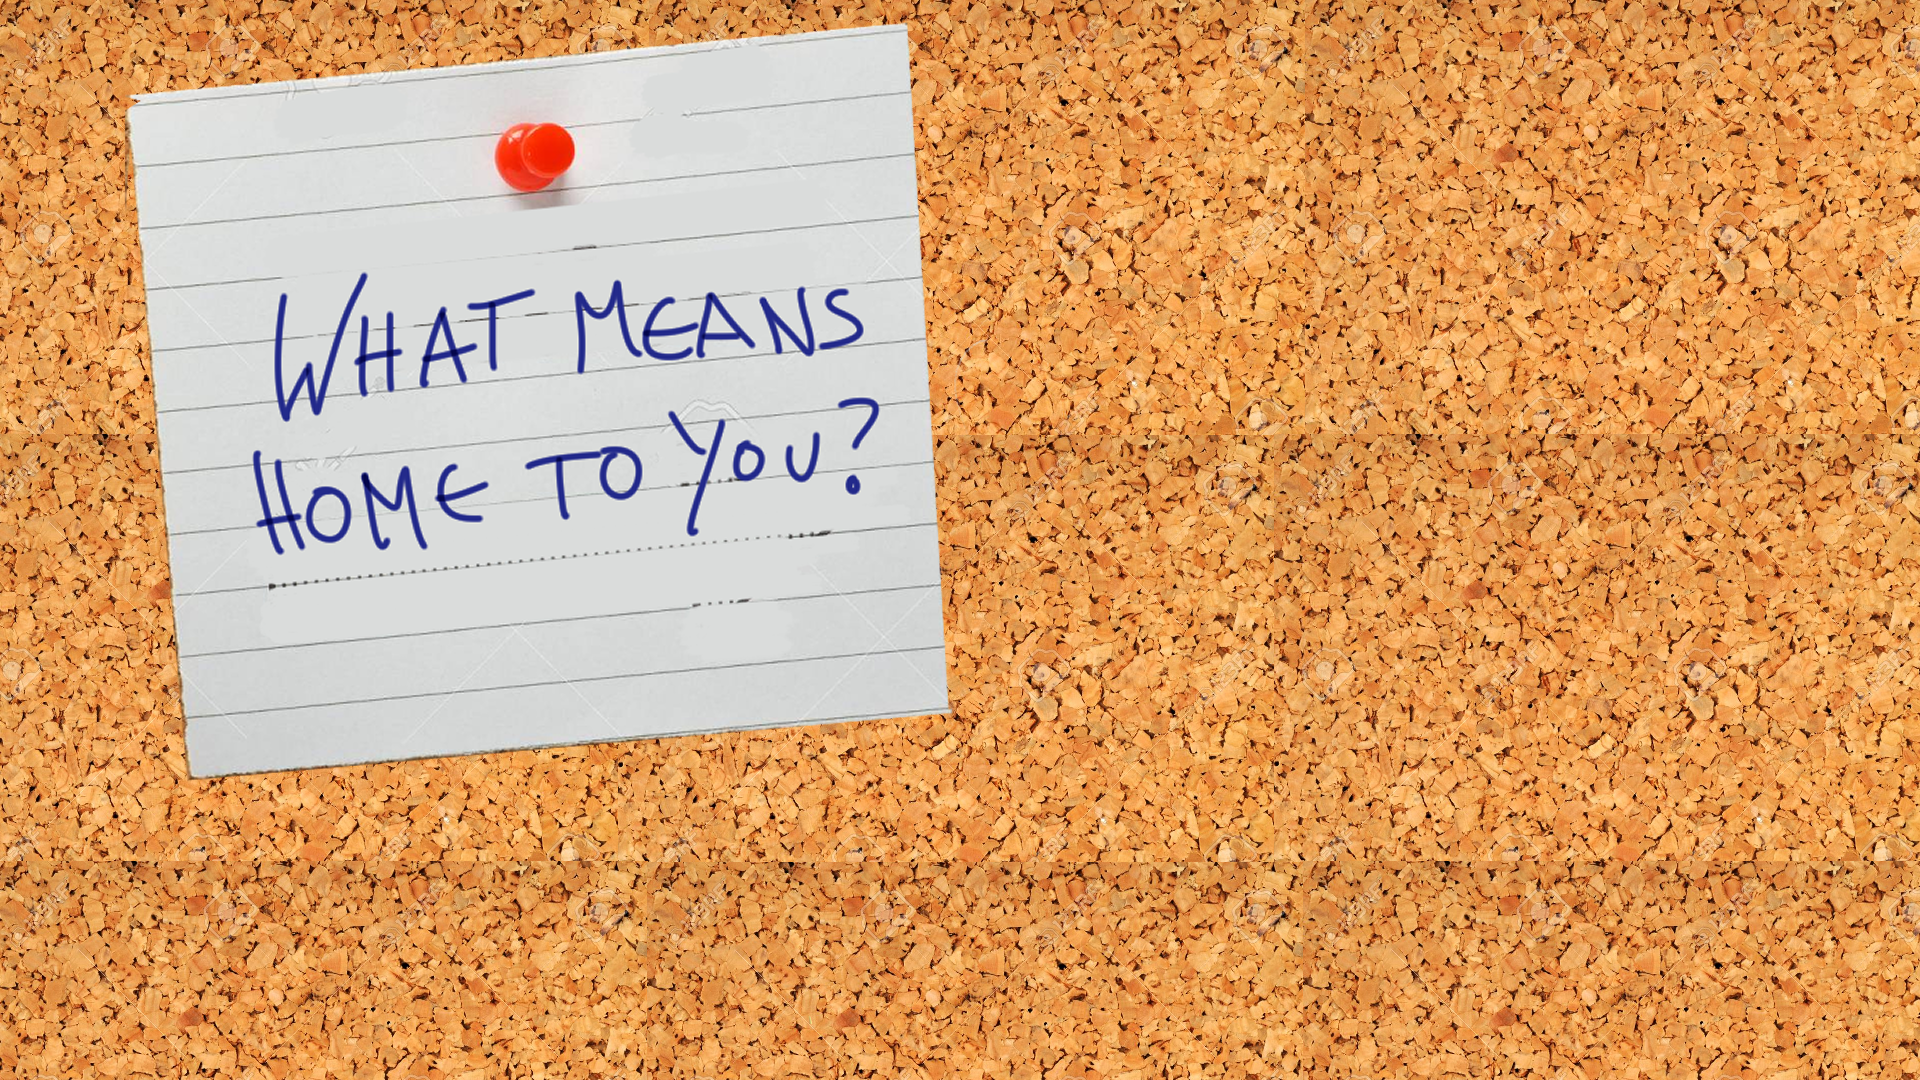 WHAT MEANS
HOME TO YOU?